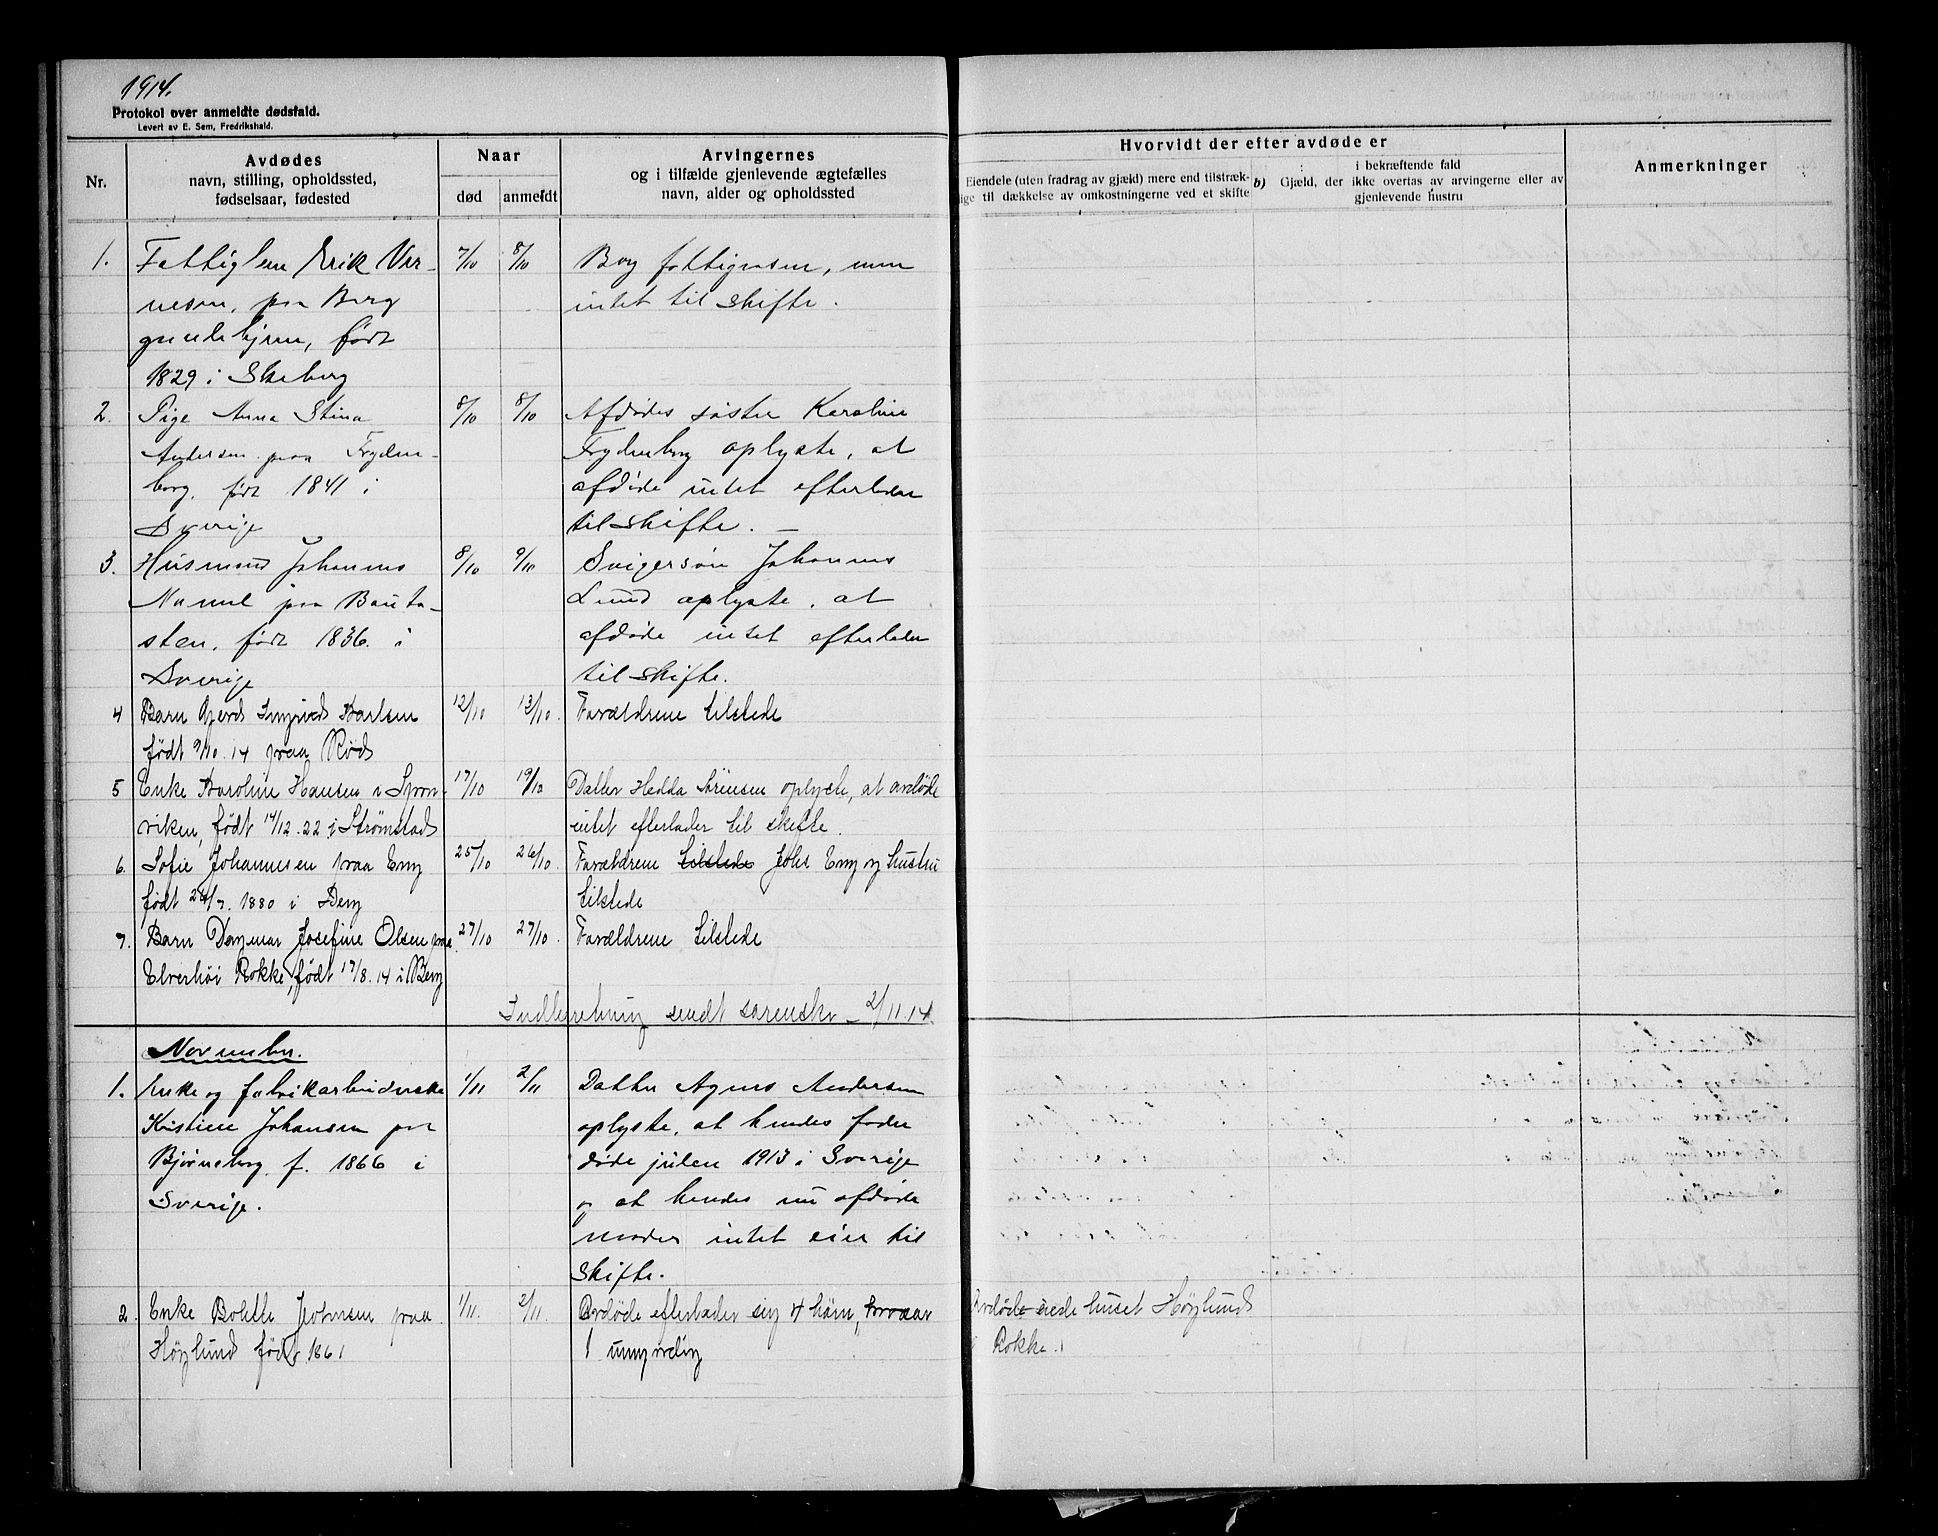 1914.
Protokol over anmeldte dødsfald.
Levert av E. Sem, Fredrikshald.
Nr.
Avdødes
navn, stilling, opholdssted,
fødselsaar, fødested
Naar
død
anmeldt
Arvingernes
og i tilfælde gjenlevende ægtefælles
navn, alder og opholdssted
Hvorvidt der efter avdøde er
Eiendele (uten fradrag av gjæld) mere end tilstræk-
lige til dækkelse av omkostningerne ved et skifte
b) Gjæld, der i bekræftende fald
ikke overtas av arvingerne eller av
gjenlevende hustru
Anmerkninger
1. Fattiglem Erik Ver- 7/10 8/10 Berg fattigvæsen, men
nesen, paa Berg intet til skifte.
gamlehjem, født
1829 i Skeberg
2. Pige Anna Stina 8/10 8/10 Afdødes søster Karoline
Andersen paa Fryden- Frydenberg oplyste, at
berg, født 1841 i afdøde intet efterlader
Sverige til skifte. —
3. Husmand Johannes 8/10 9/10 Svigersøn Johannes
paa Bauta- Lund oplyste, at
sten, født 1836. i afdøde intet efterlader
Sverige til skifte.
4 Barn Gjerd Ingrid Karlsen 12/10 13/10. Forældrene tilstede
født 9/10.14 paa Rød
5 Enke Karoline Hansen i Spon- 17/10 19/10 Datter Hedda Sørensen oplyste, at avdøde
viken, født 14/12.22 i Strømstad intet efterlader til skifte.
6. Sofie Johannesen paa Eng 25/10 26/10. Forældrene tilstede Johs Eng og hustru
født 26/7. 1880 i Berg tilstede
7. Barn Dagmar Josefine Olsen paa 27/10 27/10. Forældrene tilstede
Elverhøi Rokke, født 17/8.14 i Berg
Indberetning sendt sorenskr — 2/11.14
November.
1. Enke og fabrikarbeiderske 1/11 2/11 Datter Agnes Andersen
Kristine Johansen paa oplyste, at hendes fader
Bjørneborg f. 1866 i døde julen 1913 i Sverige
Sverige. og at hendes nu afdøde
moder intet eier til
skifte.
2. Enke Bolette Jørgensen paa 1/11. 2/11. Avdøde efterlader sig 4 børn, hvorav Avdøde eiede huset Høglund
Høglund født 1861 1 umyndig i Rokke.